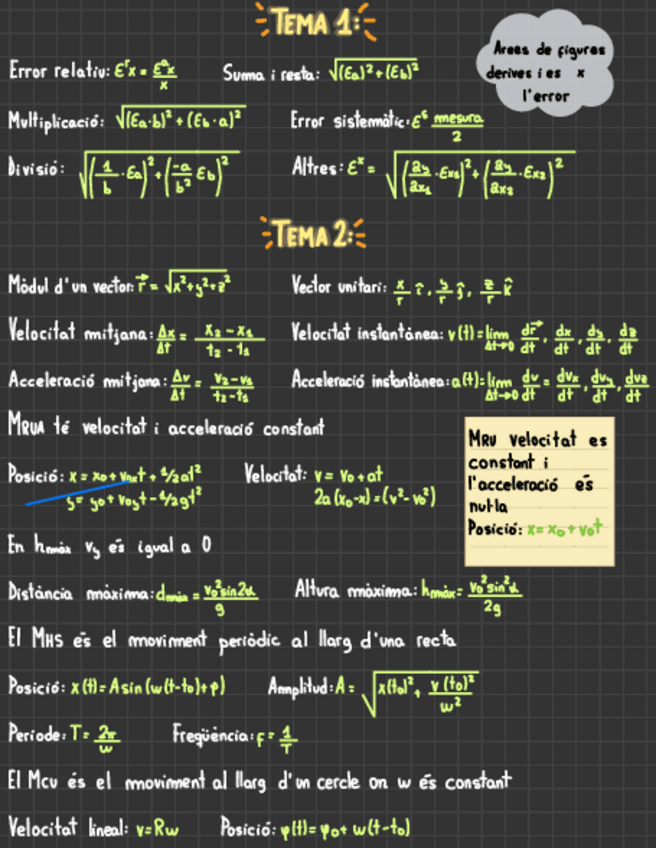 TEMA 1:
Àrees de figures
derives i es x
l'error
Error relatiu: Ɛʳx = Ɛᵃx/x Suma i resta: √((Ɛa)²+(Ɛb)²)
Multiplicació: √((Ɛa·b)²+(Ɛb·a)²) Error sistemàtic: Ɛˢ mesura/2
Divisió: √((1/b·Ɛa)²+(-a/b² Ɛb)²) Altres: Ɛˣ = √((∂y/∂x₁·Ɛx₁)²+(∂y/∂x₂·Ɛx₂)²)
TEMA 2:
Mòdul d'un vector: r⃗ = √(x²+y²+z²) Vector unitari: x/r î, y/r ĵ, z/r k̂
Velocitat mitjana: Δx/Δt = (x₂-x₁)/(t₂-t₁) Velocitat instantànea: v(t)=lim Δt→0 dr⃗/dt, dx/dt, dy/dt, dz/dt
Acceleració mitjana: Δv/Δt = (v₂-v₁)/(t₂-t₁) Acceleració instantànea: a(t)=lim Δt→0 dv/dt = dvx/dt, dvy/dt, dvz/dt
MRUA té velocitat i acceleració constant
MRU velocitat es
constant i
l'acceleració és
nul·la
Posició: x=x₀+v₀t
Posició: x = x₀+v₀ₓt+1/2at² Velocitat: v = v₀+at
y = y₀+v₀yt-1/2gt² 2a(x₀-x)=(v²-v₀²)
En hmàx vy és igual a 0
Distància màxima: dmàx = v₀²sin2α/g Altura màxima: hmàx = v₀²sin²α/2g
El MHS és el moviment periòdic al llarg d'una recta
Posició: x(t)=Asin(w(t-t₀)+φ) Amplitud: A = √(x(t₀)², v(t₀)²/w²)
Període: T = 2π/w Freqüència: f = 1/T
El MCU és el moviment al llarg d'un cercle on w és constant
Velocitat lineal: v=Rw Posició: φ(t)=φ₀+w(t-t₀)